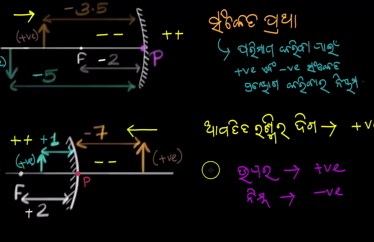 -3.5
(+ve)
-- ++
F -2 P
-5
ସଂକେତ ପ୍ରଥା
ପରିମାଣ କରିବା ପାଇଁ
+ve ଏବଂ -ve ସଂକେତ
ପ୍ରୟୋଗ କରିବାର ନିୟମ.
++ +1 -7
(+ve) -- (+ve)
F P
+2
ଆପତିତ ରଶ୍ମିର ଦିଗ → +v
ଉପର → +ve
→ -ve